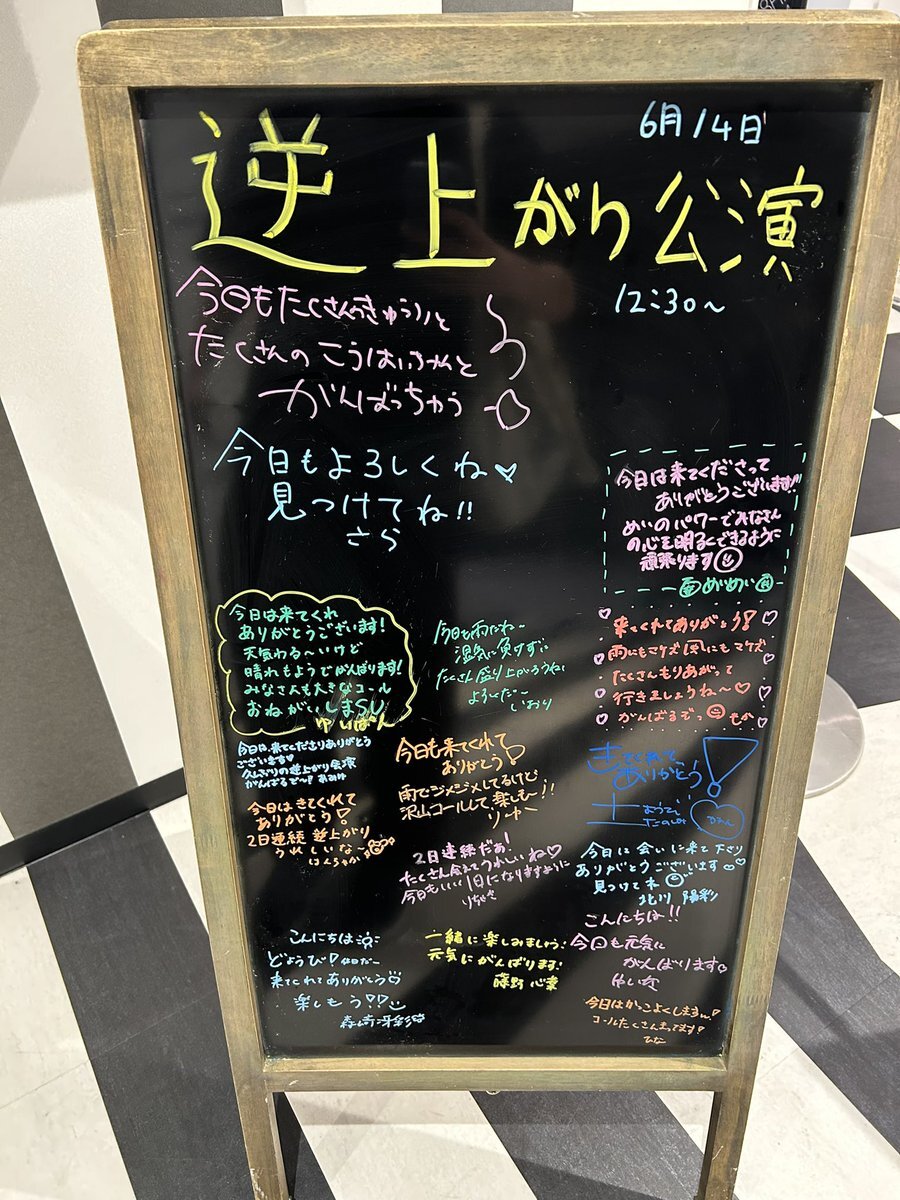 6月14日
逆上がり公演
12:30〜
今日もたくさん
たくさんのこうはいちゃんと
がんばっちゃう
今日もよろしくね♥
見つけてね!!
さら
今日は来てくださって
ありがとうございます!!
めいのパワーでみなさん
の心を明るくできるように
頑張ります
めいめい
今日は来てくれ
ありがとうございます!
天気わる〜いけど
晴れもようでがんばります!
みなさんも大きなコール
おねがいしまSU
ゆいぱん
今日も雨だね〜
湿気に負けずに
たくさん盛り上がろうね
よろしくだ〜
しおり
来てくれてありがとう!
雨にもマケズ風にもマケズ
たくさんもりあがって
行きましょうね〜♡
がんばるぞっ
もか
今日は、来てくださりありがとう
ございます♥
久しぶりの逆上がり公演
がんばるぞ〜!
今日も来てくれて
ありがとう!
雨でジメジメしてるけど
沢山コールして楽しも〜!!
りーナー
きてくれて
ありがとう!
土
ようび
たのしみ
今日はきてくれて
ありがとう!
2日連続 逆上がり
うれしいな〜
はんちゃか
2日連続だあ!
たくさん会えてうれしいね♡
今日もいい1日になりますように
今日は会いに来て下さり
ありがとうございます♡♡
見つけてネ
北川 陽彩
こんにちは
どようび!
来てくれてありがとう♡
楽しもう!!
森﨑冴彩
一緒に楽しみましょう!
元気にがんばります!
藤野 心葉
こんにちは!!
今日も元気に
がんばります♡
今日はかっこよくしまるw!
コールたくさんまってます♡
ひな